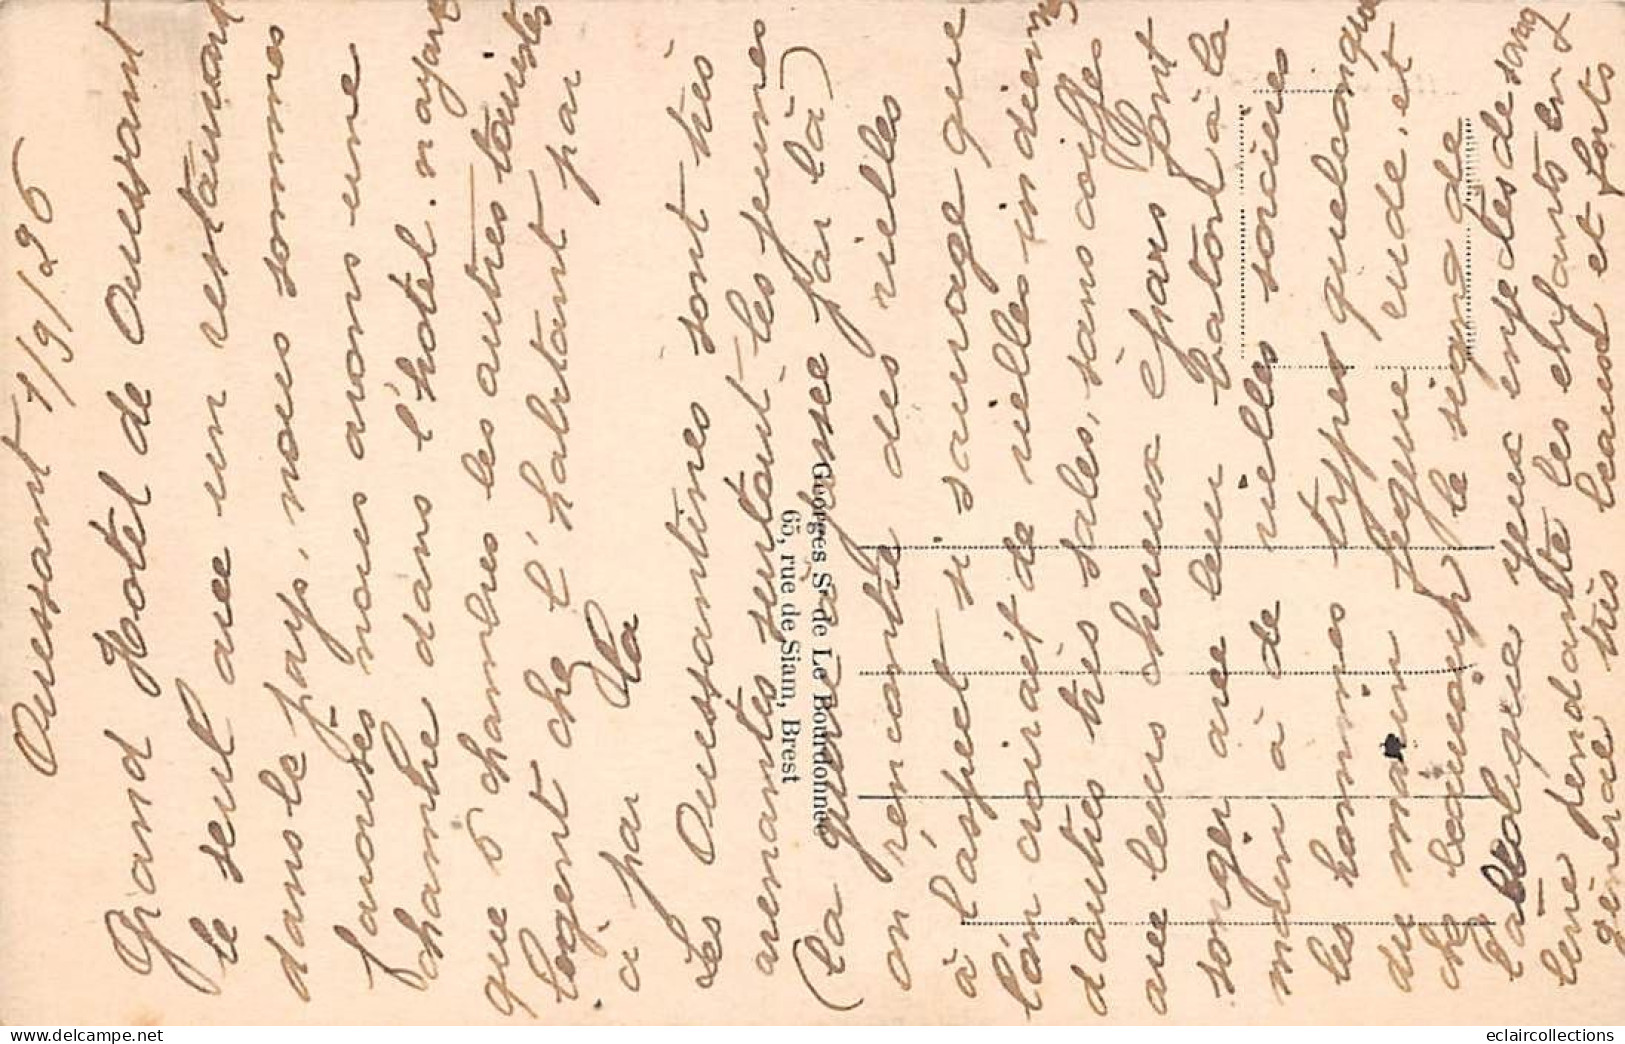 Ouessant 1/9/26
Grand Hotel de Ouessant
le seul avec un restaurant
dans le pays, nous sommes
favorisés nous avons une
chambre dans l'hotel. n'ayant
que 6 chambres les autres touristes
logent chez l'habitant par
ci par là
Les Ouessantines sont très
avenantes surtout les jeunes
(la par là)
on rencontre des vielles
à l'aspect si sauvage que
l'on croirait de vielles indiennes
d'autres très sales, sans coiffes
avec leurs cheveux épars font
songer avec leur baton à la
main à de vielles sorcières
les hommes types quelconques
du marin figure rude, et
chez beaucoup le signe de
l'alcoolique yeux injectés de sang
lèvre pendante les enfants en
général très beaux et forts
Georges Sr de Le Bourdonnec
65, rue de Siam, Brest
eclaircollections